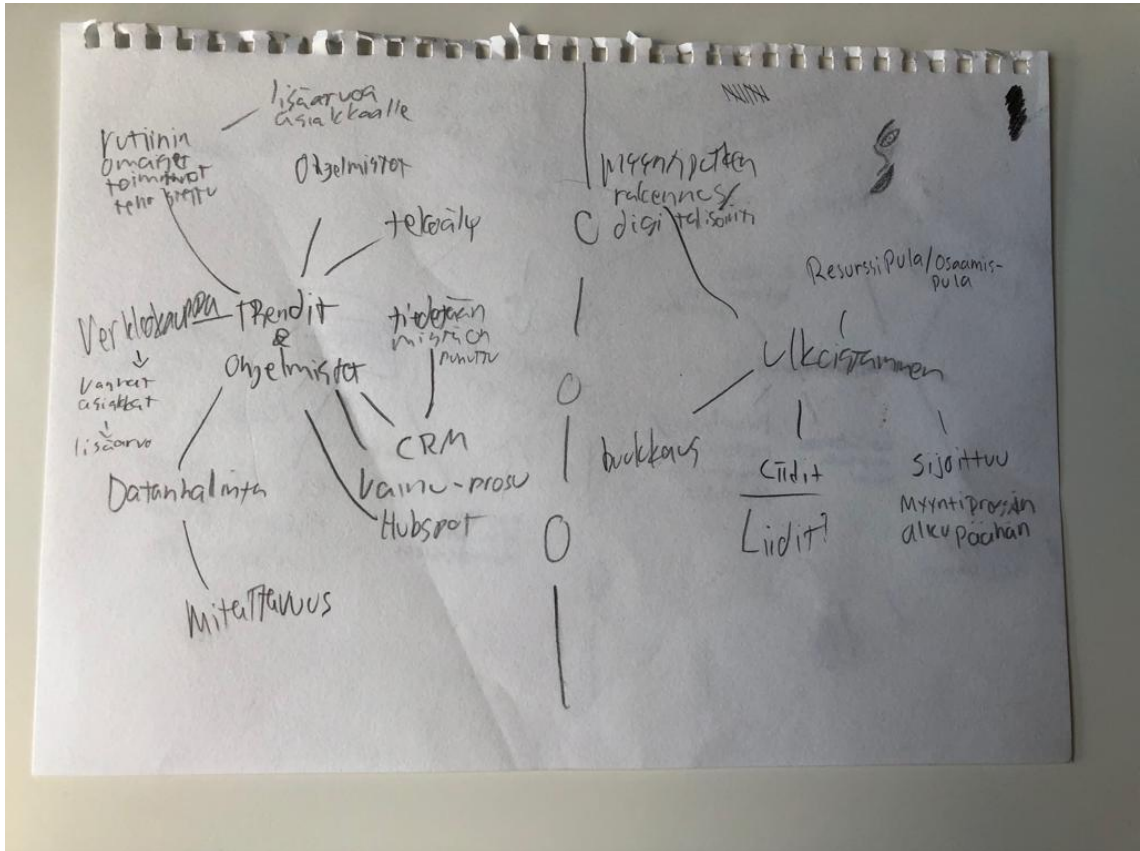 lisäarvoa
asiakkaalle
rutiinin
omaiset
toimitavat
Ohjelmistot
tekoäly
Verkkokauppa
TRendit
&
Ohjelmistot
vanhat
asiakkat
lisäarvo
tiedetään
mistä on
puhuttu
CRM
Vainu-prosu
Hubspot
Datanhalinta
Mitattavuus
Myyntiputken
rakennus/
digitalisointi
Resurssipula/osaamis-
pula
Ulkoistaminen
buukkaus
Liidit
Liidit?
Sijoittuu
Myyntiprossin
alkupäähän